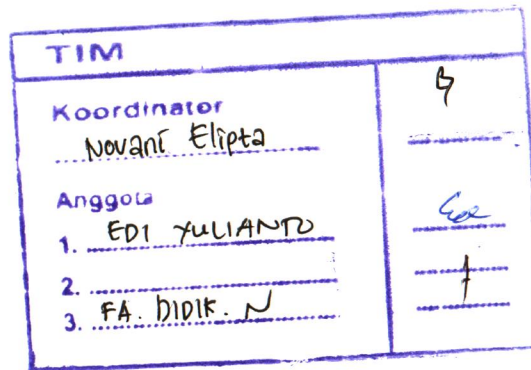 TIM
Koordinator
Novani Elipta
Anggota
1. EDI YULIANTO
2.
3. FA. DIDIK. N